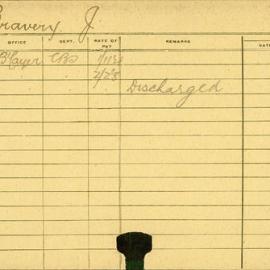 Gravery J.
OFFICE DEPT. RATE OF PAY REMARKS DATE
B'layer CBS
2/2/8
Discharged